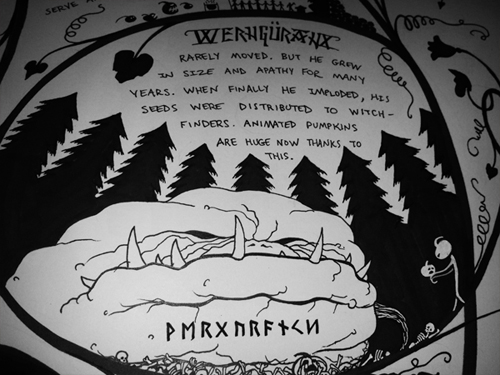 SERVE
WERHGÜRANX
RARELY MOVED. BUT HE GREW
IN SIZE AND APATHY FOR MANY
YEARS. WHEN FINALLY HE IMPLODED, HIS
SEEDS WERE DISTRIBUTED TO WITCH-
FINDERS. ANIMATED PUMPKINS
ARE HUGE NOW THANKS TO
THIS.
ᚹᛖᚱᚷᚢᚱᚨᚾᚲᛋ